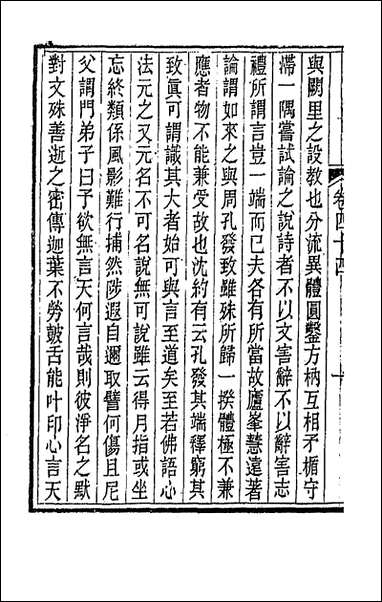 卷四十四
與闕里之設教也分流異體圓鑿方柄互相矛楯守
滯一隅嘗試論之說詩者不以文害辭不以辭害志
禮所謂言豈一端而已夫各有所當故廬峯慧遠著
論謂如來之與周孔發致雖殊所歸一揆體極不兼
應者物不能兼受故也沈約有云孔發其端釋窮其
致眞可謂識其大者始可與言至道矣至若佛語心
法元之又元名不可名說無可說雖云得月指或坐
忘終類係風影難行捕然陟遐自邇取譬何傷且尼
父謂門弟子曰予欲無言天何言哉則彼淨名之默
對文殊善逝之密傳迦葉不勞皷舌能叶印心言天